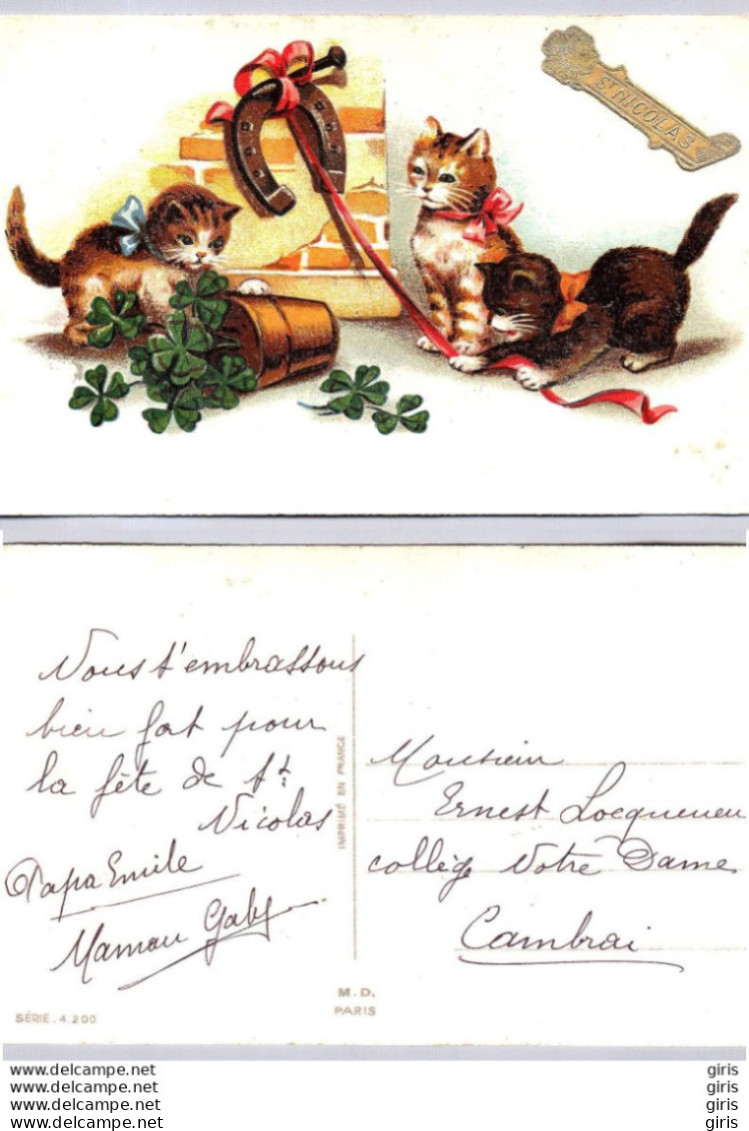 St NICOLAS
Nous t'embrassons
bien fort pour
la fête de St
Nicolas
Papa Emile
Maman Gaby
SÉRIE. 4.200
IMPRIMÉ EN FRANCE
M.D.
PARIS
Monsieur
Ernest
collège Notre Dame
Cambrai
www.delcampe.net
www.delcampe.net
www.delcampe.net
www.delcampe.net
giris
giris
giris
giris